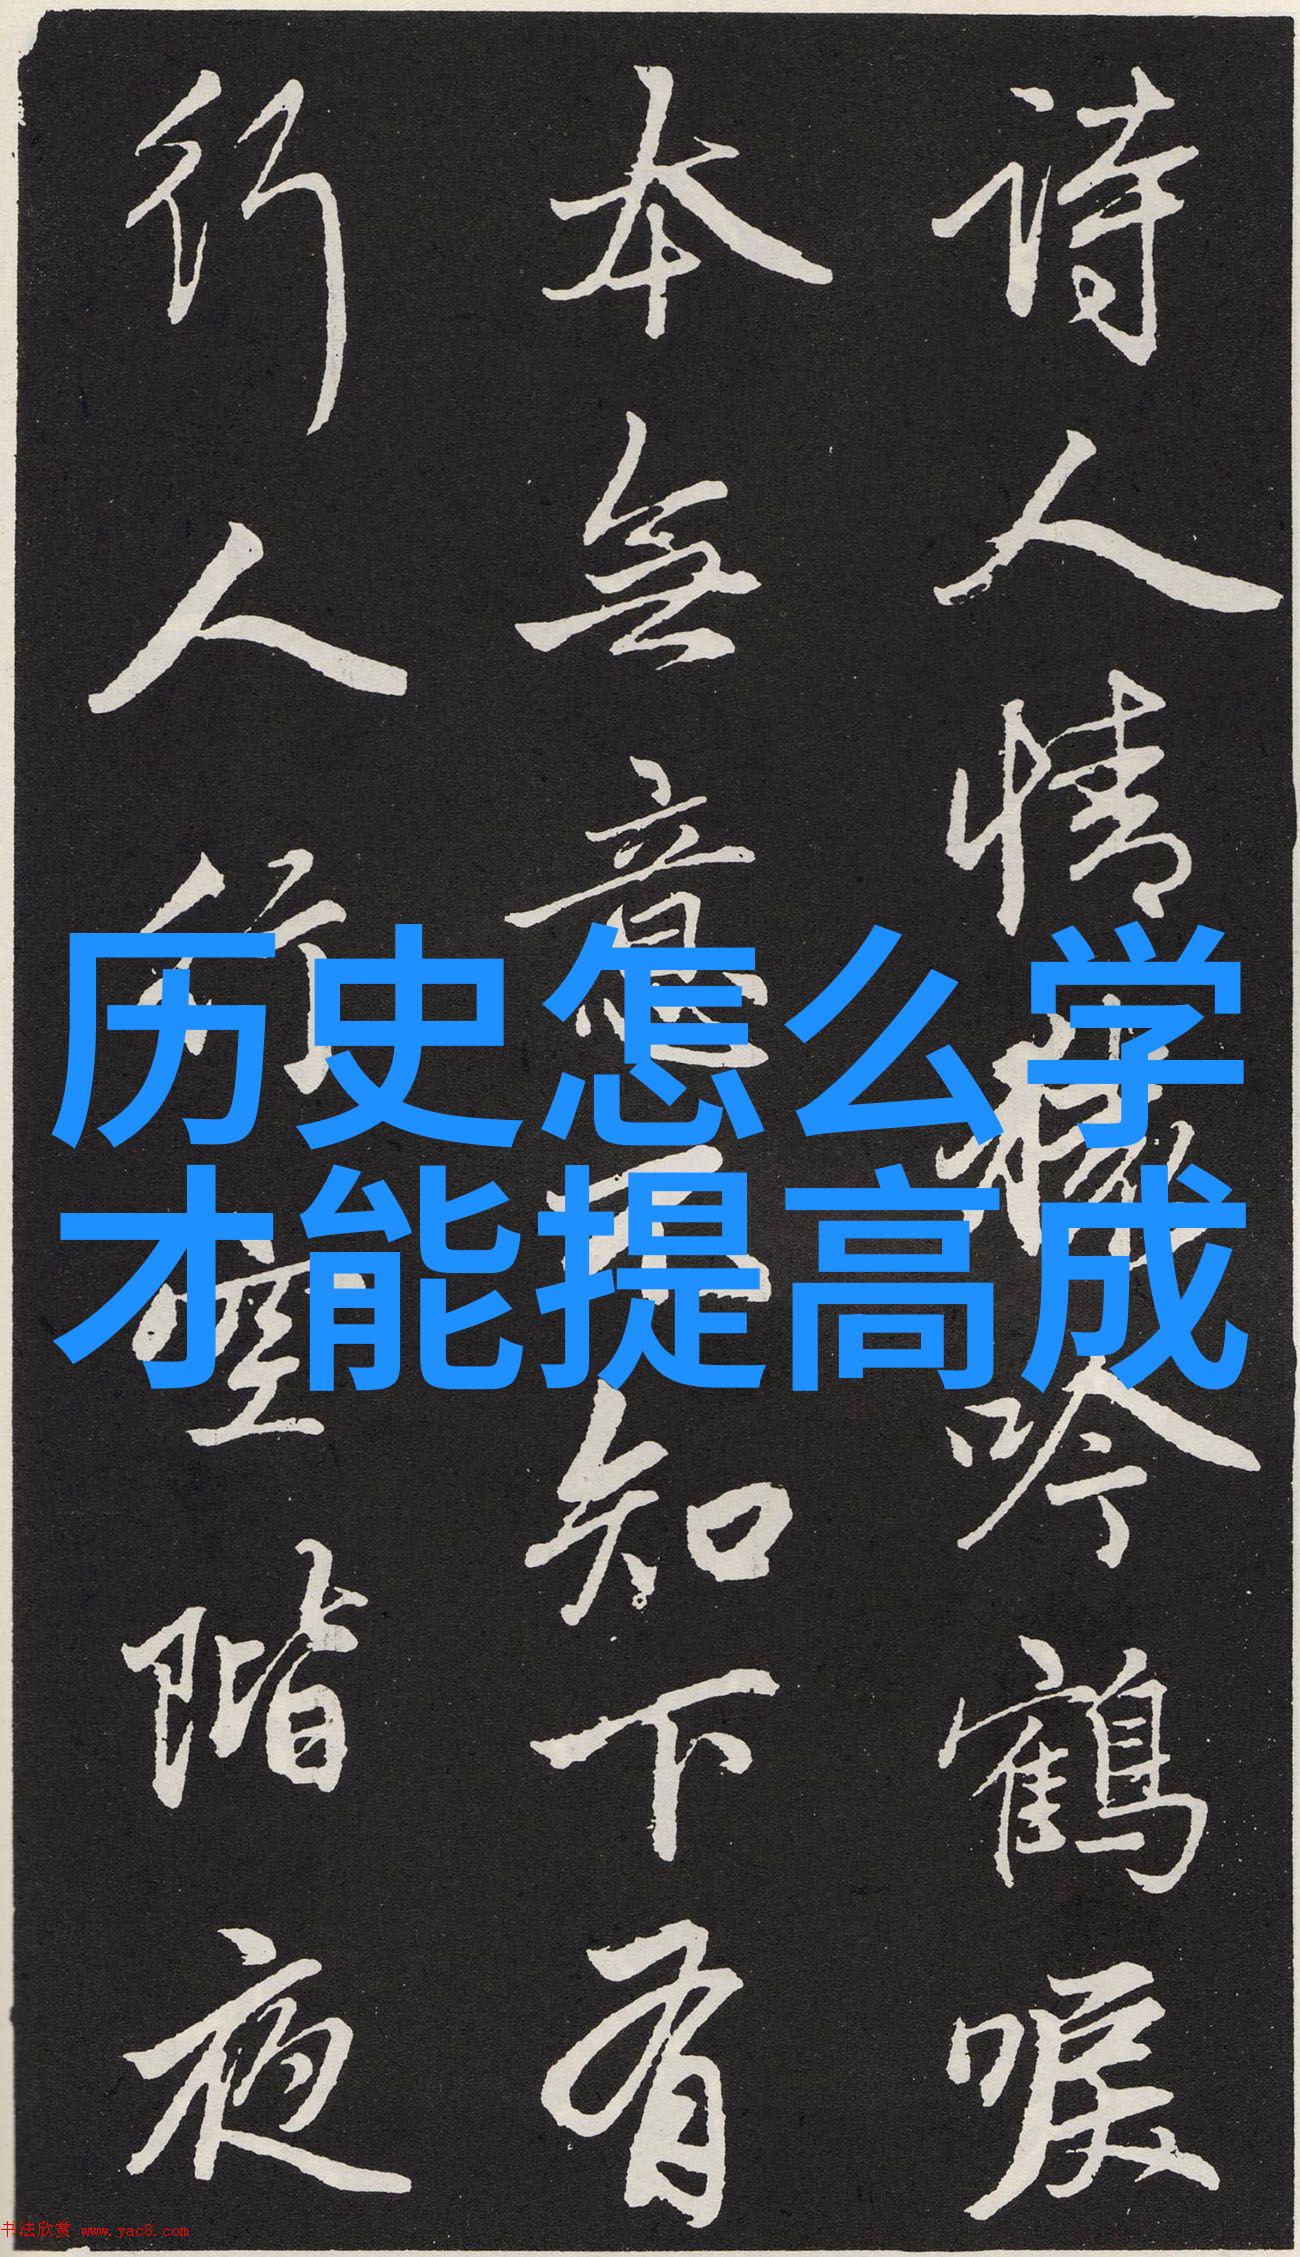 诗人情猿吟鶴唳
本無意不知下有
行人行空階夜
历史怎么学
才能提高成
书法欣赏 www.yac8.com